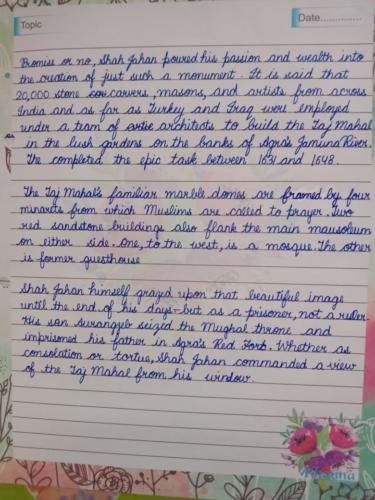 Topic
Date.............
Promise or no, Shah Jahan poured his passion and wealth into
the creation of just such a monument. It is said that
20,000 stone carvers, masons, and artists from across
India and as far as Turkey and Iraq were Employed
under a team of architects to build the Taj Mahal
in the lush gardens on the banks of Agra's Jamuna River.
The completed the epic task between 1631 and 1648.
The Taj Mahal's familiar marble domes are framed by four
minarets from which Muslims are called to prayer. Two
red sandstone buildings also flank the main mausoleum
on either side. One, to the west, is a mosque. The other
is former guesthouse
Shah Jahan himself grazed upon that beautiful image
until the end of his days-but as a prisoner, not a ruler.
His son Aurangzeb seized the Mughal throne and
imprisoned his father in Agra's Red Fort. Whether as
consolation or tortue, Shah Jahan commanded a view
of the Taj Mahal from his window.